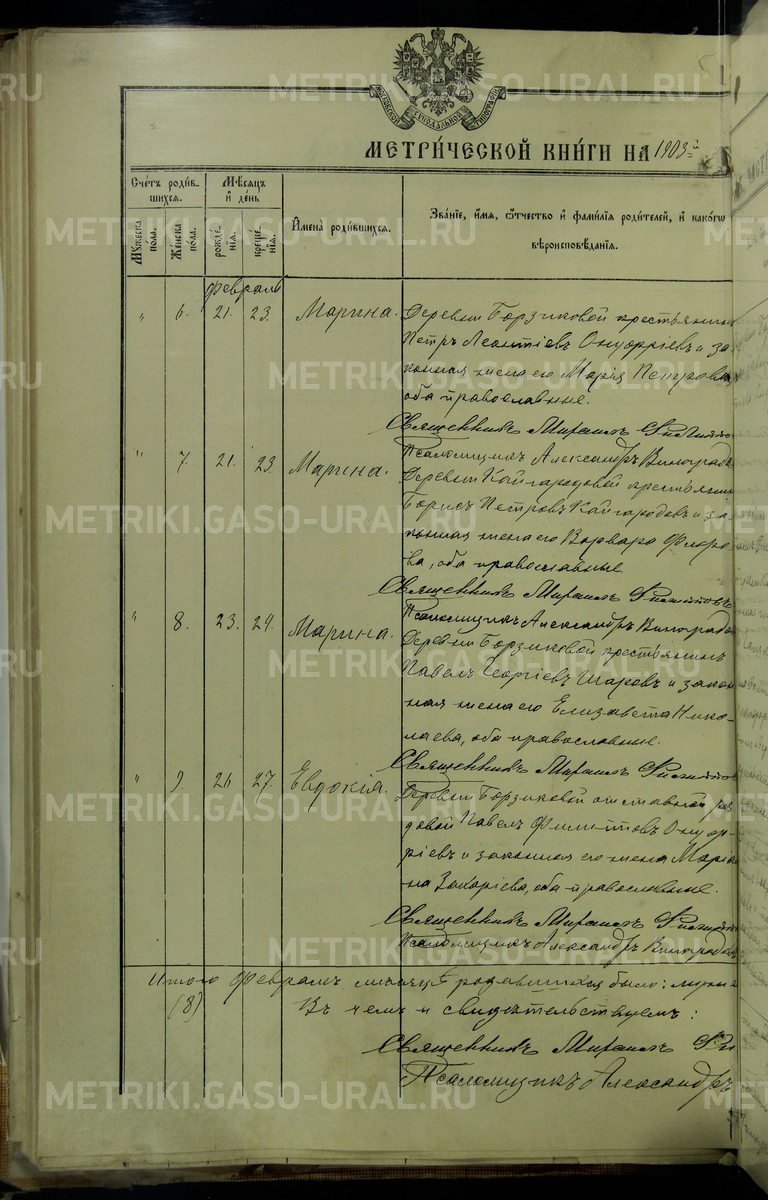 МОСКОВСКОЙ СѴНОДАЛЬНОЙ ТИПОГРАФІИ
МЕТРИ́ЧЕСКОЙ КНИ́ГИ НА 1903й
Сче́тъ роди́в-
шихся.
Мѣ́сяцъ
и҆ де́нь
И҆мена̀ роди́вшихся.
Зва́нїе, и҆́мя, ѻ҆́тчество и҆ фами́лїя роди́телей, и҆ како́гѡ
вѣроисповѣ́данїя.
Мꙋ́жеска
по́ла.
Же́нска
по́ла.
рожде́-
нїя.
креще́-
нїя.
февраль
" 6. 21. 23. Марина. Деревни Борзиковой крестьянинъ
Петръ Леонтіевъ Онуфріевъ и за-
конная жена его Марія Петрова,
оба православные.
Священникъ Михаилъ
Псаломщикъ Александръ Виноградов
" 7. 21. 23 Марина. Деревни Кайгородовой крестьянин
Борисъ Петровъ Кайгородовъ и за-
конная жена его Варвара Флоро-
ва, оба православные.
Священникъ Михаилъ Филитовъ
Псаломщикъ Александръ Виноградов
" 8. 23. 24. Марина. Деревни Борзиковой крестьянинъ
Павелъ Георгіевъ Шаровъ и закон-
ная жена его Елизавета Нико-
лаева, оба православные.
Священникъ Михаилъ
" 9 26 27. Евдокія. Деревни Борзиковой отставной ря-
довой Павелъ Филитовъ Онуф-
ріевъ и законная его жена Маріа-
на Захаріева, оба православные.
Священникъ Михаилъ
Псаломщикъ Александръ Виноградовъ
Итого Февралѣ мѣсяцѣ родившихся было:
(8) Въ чемъ и свидѣтельствуемъ:
Священникъ Михаилъ Фи
Псаломщикъ Александръ
METRIKI.GASO-URAL.RU